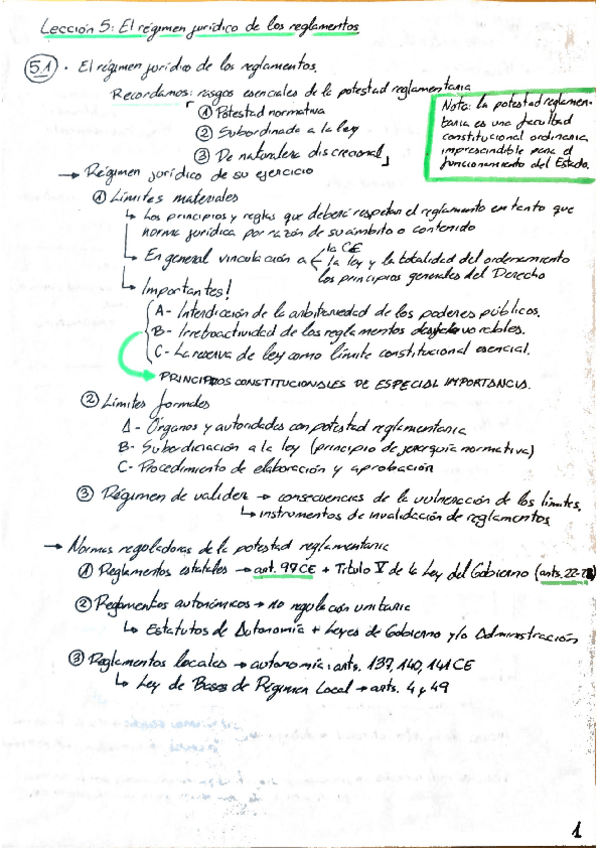 Lección 5: El régimen jurídico de los reglamentos
5.1 · El régimen jurídico de los reglamentos.
Recordamos: rasgos esenciales de la potestad reglamentaria
① Potestad normativa
② Subordinada a la ley
③ De naturaleza discrecional
Nota: la potestad reglamen-
taria es una facultad
constitucional ordinaria
imprescindible para el
funcionamiento del Estado.
→ Régimen jurídico de su ejercicio
① Límites materiales
↳ Los principios y reglas que deberá respetar el reglamento en tanto que
norma jurídica por razón de su ámbito o contenido
la CE
↳ En general vinculación a la ley y la totalidad del ordenamiento
los principios generales del Derecho
↳ Importantes!
A- Interdicción de la arbitrariedad de los poderes públicos.
B- Irretroactividad de los reglamentos desfavorables.
C- La reserva de ley como límite constitucional esencial.
PRINCIPIOS CONSTITUCIONALES DE ESPECIAL IMPORTANCIA.
② Límites formales
A- Órganos y autoridades con potestad reglamentaria
B- Subordinación a la ley (principio de jerarquía normativa)
C- Procedimiento de elaboración y aprobación
③ Régimen de validez → consecuencias de la vulneración de los límites.
↳ instrumentos de invalidación de reglamentos
→ Normas reguladoras de la potestad reglamentaria
① Reglamentos estatales → art. 97 CE + Título V de la Ley del Gobierno (arts. 22-28)
② Reglamentos autonómicos → no regulación unitaria
↳ Estatutos de Autonomía + Leyes de Gobierno y/o Administración
③ Reglamentos locales → autonomía: arts. 137, 140, 141 CE
↳ Ley de Bases de Régimen Local → arts. 4 y 49
1